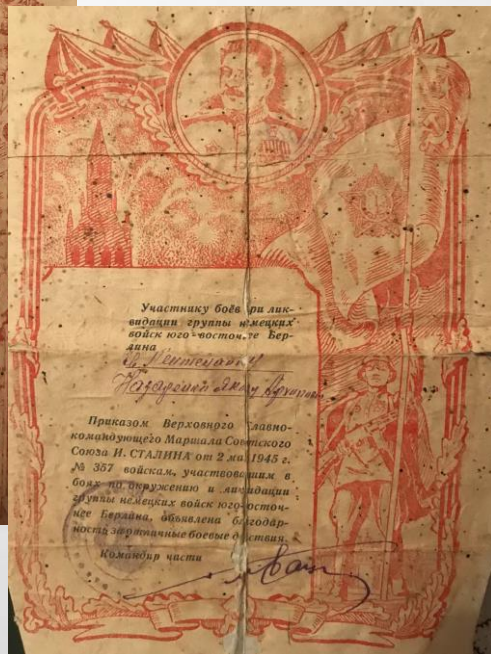 Участнику боёв при лик-
видации группы немецких
войск юго-восточнее Бер-
лина
Приказом Верховного Главно-
командующего Маршала Советского
Союза И. СТАЛИНА от 2 мая 1945 г.
№ 357 войскам, участвовавшим в
боях по окружению и ликвидации
группы немецких войск юго-восточ-
нее Берлина, объявлена благодар-
ность за отличные боевые действия.
Командир части